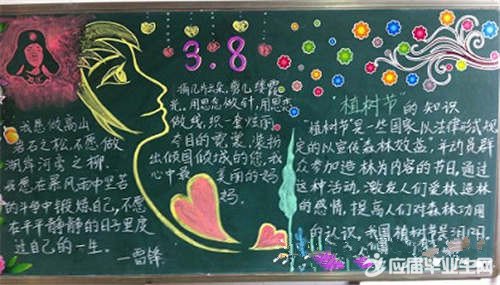 3.8
摘几片云朵,剪几缕霞
光,用思念做针,用思念
做线,织一套恒雨
今目的霓裳,装扮
出倾国倾城的您,我
心中最美丽的妈
妈.
我愿做高山
岩石之松,不愿做
湖岸河旁之柳.
我愿在暴风雨中坚苦
的斗争中锻炼自己,不愿
在平平静静的日子里度
过自己的一生.
—雷锋
"植树节"的知识
"植树节"是一些国家以法律形式规
定的以宣传森林效益,并动员群
众参加造林为内容的节日,通过
这种活动,激发人们爱林造林
的感情,提高人们对森林功用
的认识,我国植树节是
应届毕业生网